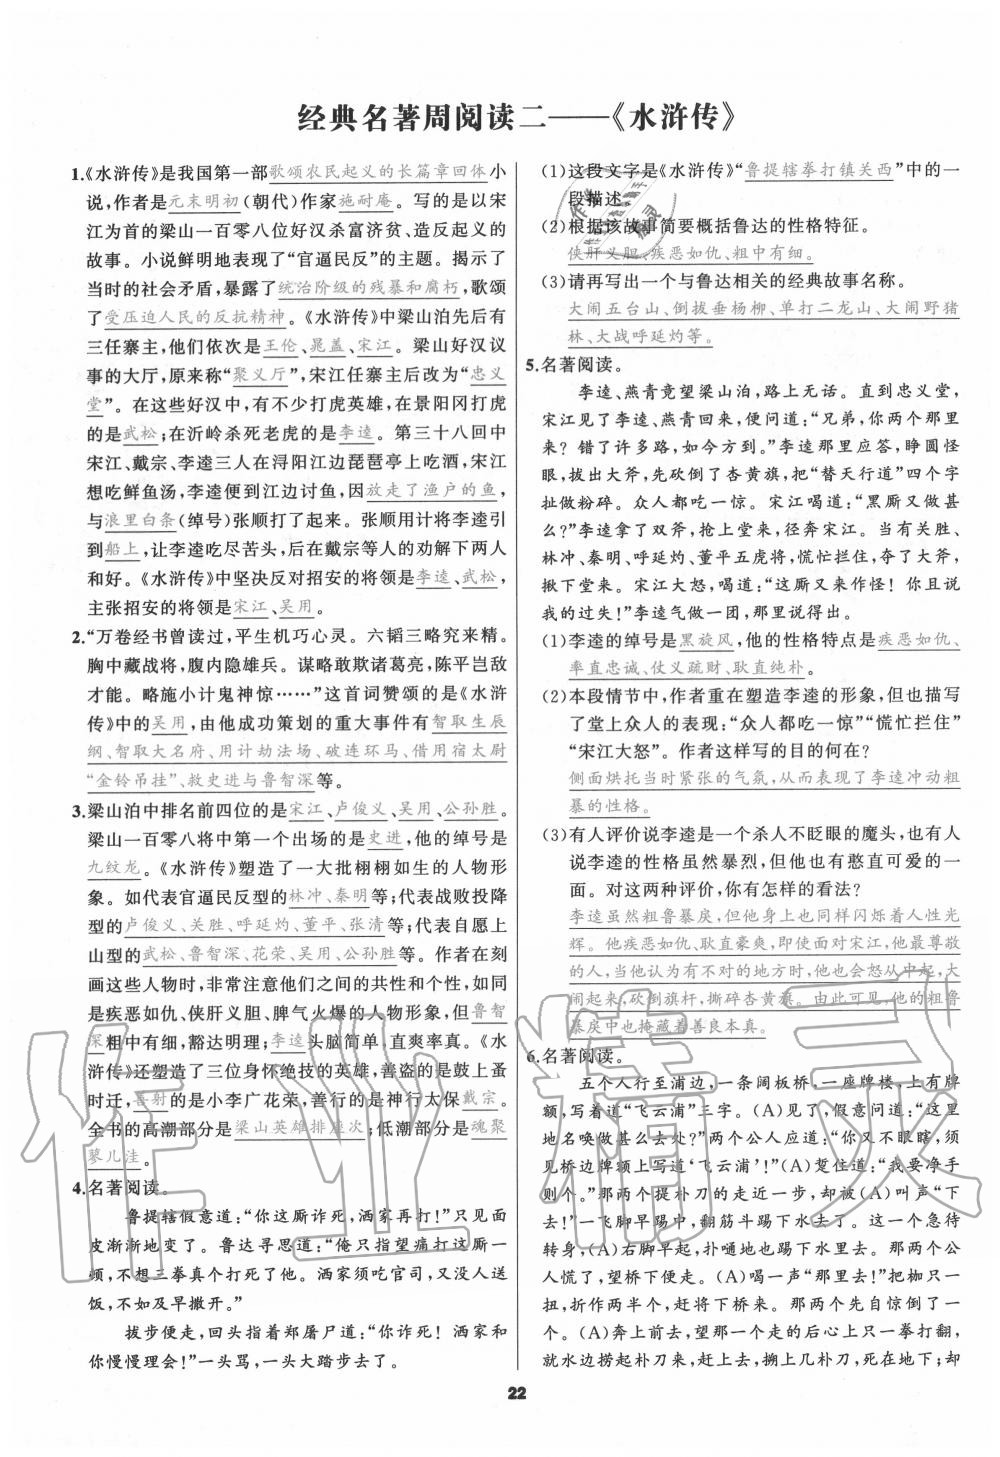 经典名著周阅读二——《水浒传》
1.《水浒传》是我国第一部歌颂农民起义的长篇章回体小
说,作者是元末明初(朝代)作家施耐庵。写的是以宋
江为首的梁山一百零八位好汉杀富济贫、造反起义的
故事。小说鲜明地表现了“官逼民反”的主题。揭示了
当时的社会矛盾,暴露了统治阶级的残暴和腐朽,歌颂
了受压迫人民的反抗精神。《水浒传》中梁山泊先后有
三任寨主,他们依次是王伦、晁盖、宋江。梁山好汉议
事的大厅,原来称“聚义厅”,宋江任寨主后改为“忠义
堂”。在这些好汉中,有不少打虎英雄,在景阳冈打虎
的是武松;在沂岭杀死老虎的是李逵。第三十八回中
宋江、戴宗、李逵三人在浔阳江边琵琶亭上吃酒,宋江
想吃鲜鱼汤,李逵便到江边讨鱼,因放走了渔户的鱼,
与浪里白条(绰号)张顺打了起来。张顺用计将李逵引
到船上,让李逵吃尽苦头,后在戴宗等人的劝解下两人
和好。《水浒传》中坚决反对招安的将领是李逵、武松,
主张招安的将领是宋江、吴用。
2.“万卷经书曾读过,平生机巧心灵。六韬三略究来精。
胸中藏战将,腹内隐雄兵。谋略敢欺诸葛亮,陈平岂敌
才能。略施小计鬼神惊……”这首词赞颂的是《水浒
传》中的吴用,由他成功策划的重大事件有智取生辰
纲、智取大名府、用计劫法场、破连环马、借用宿太尉
“金铃吊挂”、救史进与鲁智深等。
3.梁山泊中排名前四位的是宋江、卢俊义、吴用、公孙胜。
梁山一百零八将中第一个出场的是史进,他的绰号是
九纹龙。《水浒传》塑造了一大批栩栩如生的人物形
象。如代表官逼民反型的林冲、秦明等;代表战败投降
型的卢俊义、关胜、呼延灼、董平、张清等;代表自愿上
山型的武松、鲁智深、花荣、吴用、公孙胜等。作者在刻
画这些人物时,非常注意他们之间的共性和个性,如同
是疾恶如仇、侠肝义胆、脾气火爆的人物形象,但鲁智
深粗中有细,豁达明理;李逵头脑简单,直爽率真。《水
浒传》还塑造了三位身怀绝技的英雄,善盗的是鼓上蚤
时迁,善射的是小李广花荣,善行的是神行太保戴宗。
全书的高潮部分是梁山英雄排座次;低潮部分是魂聚
蓼儿洼。
4.名著阅读。
鲁提辖假意道:“你这厮诈死,洒家再打!”只见面
皮渐渐地变了。鲁达寻思道:“俺只指望痛打这厮一
顿,不想三拳真个打死了他。洒家须吃官司,又没人送
饭,不如及早撒开。”
拔步便走,回头指着郑屠尸道:“你诈死!洒家和
你慢慢理会!”一头骂,一头大踏步去了。
(1)这段文字是《水浒传》“鲁提辖拳打镇关西”中的一
段描述。
(2)根据该故事简要概括鲁达的性格特征。
侠肝义胆、疾恶如仇、粗中有细。
(3)请再写出一个与鲁达相关的经典故事名称。
大闹五台山、倒拔垂杨柳、单打二龙山、大闹野猪
林、大战呼延灼等。
5.名著阅读。
李逵、燕青竟望梁山泊,路上无话。直到忠义堂,
宋江见了李逵、燕青回来,便问道:“兄弟,你两个那里
来?错了许多路,如今方到。”李逵那里应答,睁圆怪
眼,拔出大斧,先砍倒了杏黄旗,把“替天行道”四个字
扯做粉碎。众人都吃一惊。宋江喝道:“黑厮又做甚
么?”李逵拿了双斧,抢上堂来,径奔宋江。当有关胜、
林冲、秦明、呼延灼、董平五虎将,慌忙拦住,夺了大斧,
揪下堂来。宋江大怒,喝道:“这厮又来作怪!你且说
我的过失!”李逵气做一团,那里说得出。
(1)李逵的绰号是黑旋风,他的性格特点是疾恶如仇、
率直忠诚、仗义疏财、耿直纯朴。
(2)本段情节中,作者重在塑造李逵的形象,但也描写
了堂上众人的表现:“众人都吃一惊”“慌忙拦住”
“宋江大怒”。作者这样写的目的何在?
侧面烘托当时紧张的气氛,从而表现了李逵冲动粗
暴的性格。
(3)有人评价说李逵是一个杀人不眨眼的魔头,也有人
说李逵的性格虽然暴烈,但他也有憨直可爱的一
面。对这两种评价,你有怎样的看法?
李逵虽然粗鲁暴戾,但他身上也同样闪烁着人性光
辉。他疾恶如仇、耿直豪爽,即使面对宋江,他最尊敬
的人,当他认为有不对的地方时,他也会怒从中起,大
闹起来,砍倒旗杆,撕碎杏黄旗。由此可见,他的粗鲁
暴戾中也掩藏着善良本真。
6.名著阅读。
五个人行至浦边,一条阔板桥,一座牌楼,上有牌
额,写着道“飞云浦”三字。(A)见了,假意问道:“这里
地名唤做甚么去处?”两个公人应道:“你又不眼瞎,须
见桥边牌额上写道‘飞云浦’!”(A)踅住道:“我要净手
则个。”那两个提朴刀的走近一步,却被(A)叫声“下
去!”一飞脚早踢中,翻筋斗踢下水去了。这一个急待
转身,(A)右脚早起,扑嗵地也踢下水里去。那两个公
人慌了,望桥下便走。(A)喝一声“那里去!”把枷只一
扭,折作两半个,赶将下桥来。那两个先自惊倒了一
个。(A)奔上前去,望那一个走的后心上只一拳打翻,
就水边捞起朴刀来,赶上去,搠上几朴刀,死在地下;却
22
作业精灵